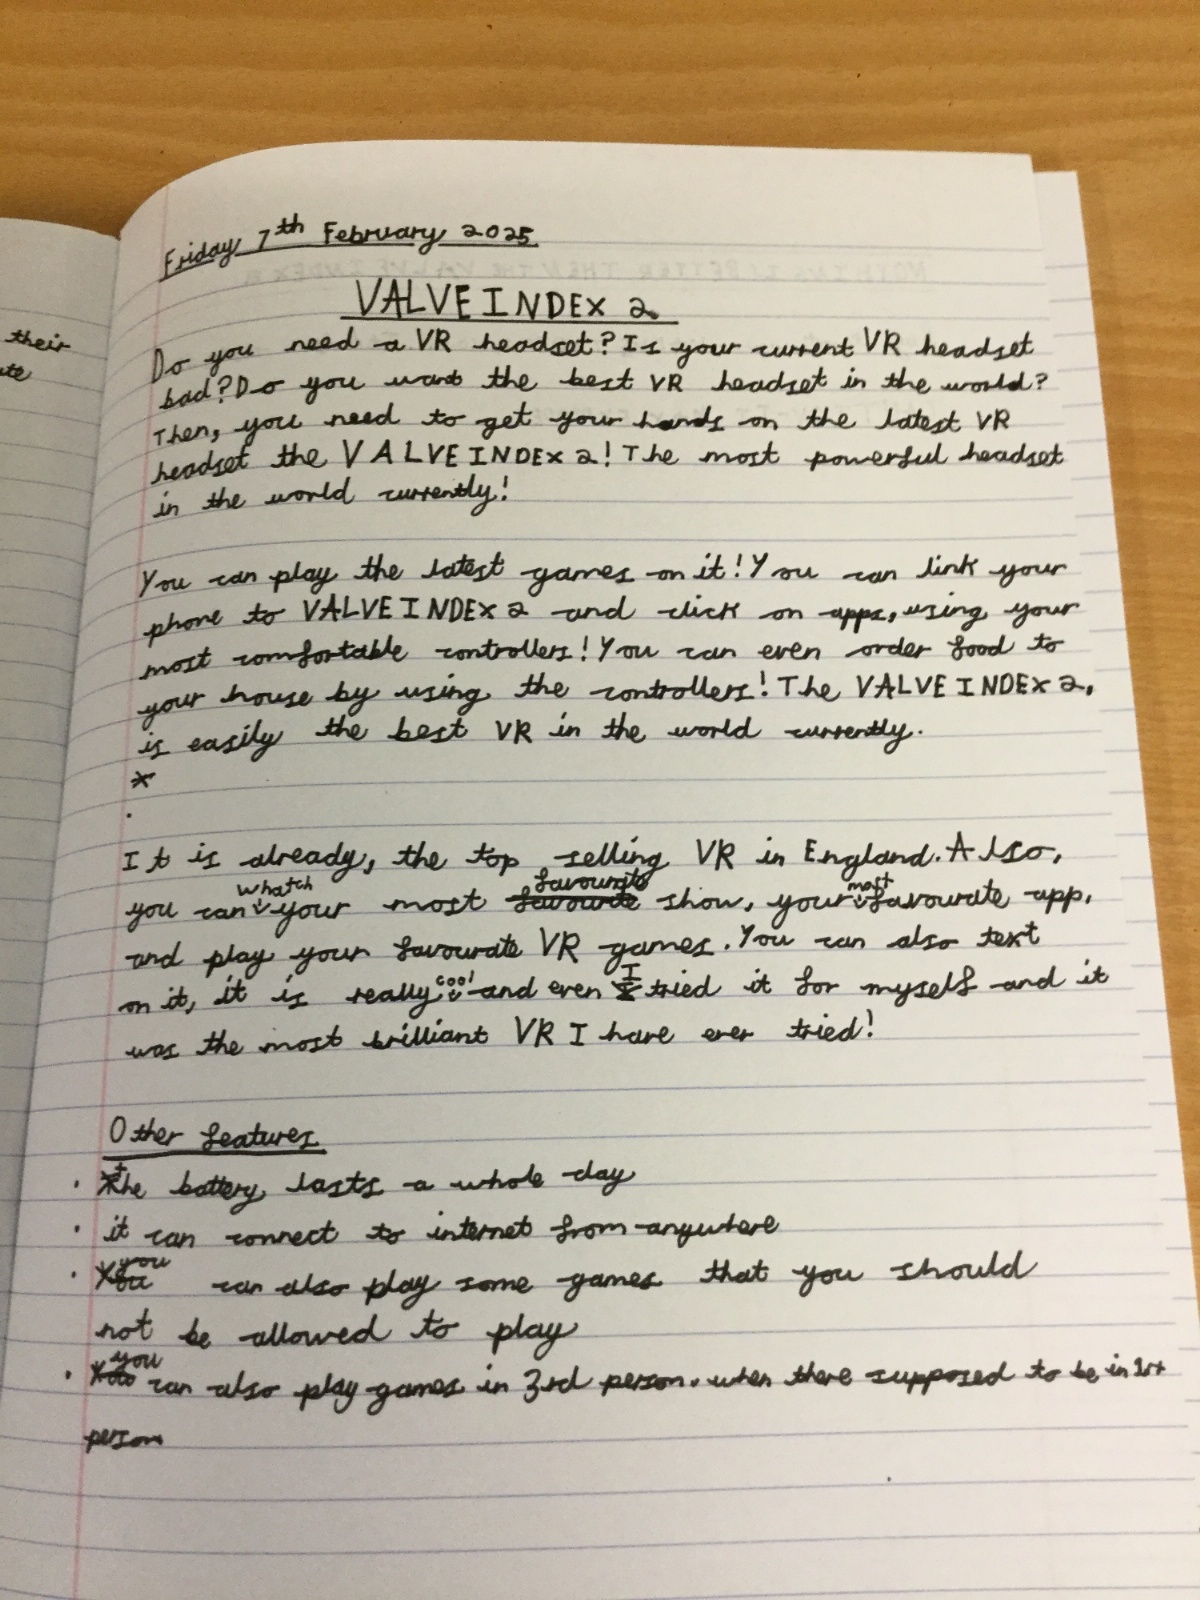 their
Friday 7th February 2025
VALVE INDEX 2
Do you need a VR headset? Is your current VR headset
bad? Do you want the best VR headset in the world?
Then, you need to get your hands on the latest VR
headset the VALVE INDEX 2! The most powerful headset
in the world currently!
You can play the latest games on it! You can link your
phone to VALVE INDEX 2 and click on apps, using your
most comfortable controllers! You can even order food to
your house by using the controllers! The VALVE INDEX 2,
is easily the best VR in the world currently.
It is already, the top selling VR in England. Also,
you can whatch your most favourite show, your most favourate app,
and play your favourate VR games. You can also text
on it, it is really cool and even I tried it for myself and it
was the most brilliant VR I have ever tried!
Other features
· the battery lasts a whole day
· it can connect to internet from anywhere
· you can also play some games that you should
not be allowed to play
· you can also play games in 3rd person. when there supposed to be in 1st
person